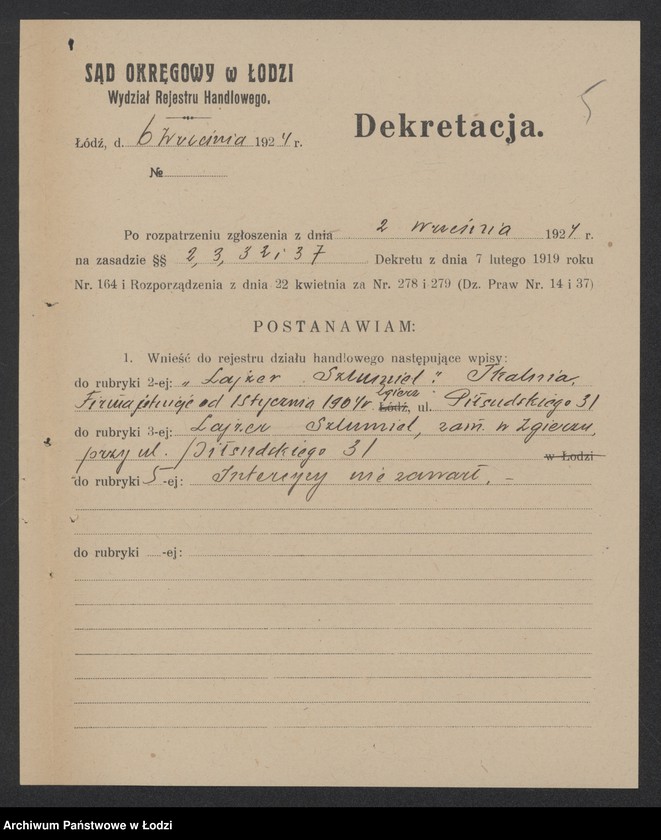 SĄD OKRĘGOWY w ŁODZI
Wydział Rejestru Handlowego.
5
Dekretacja.
Łódź, d. 6 Września 1924 r.
№
Po rozpatrzeniu zgłoszenia z dnia 2 września 1924 r.
na zasadzie §§ 2, 3, 32 i 37 Dekretu z dnia 7 lutego 1919 roku
Nr. 164 i Rozporządzenia z dnia 22 kwietnia za Nr. 278 i 279 (Dz. Praw Nr. 14 i 37)
POSTANAWIAM:
1. Wnieść do rejestru działu handlowego następujące wpisy:
do rubryki 2-ej: „Lajzer Szlumiel". Tkalnia.
Firma istnieje od 1 stycznia 1904 r Zgierz Łódź, ul. Piłsudskiego 31
do rubryki 3-ej: Lajzer Szlumiel, zam. w Zgierzu,
przy ul. Piłsudskiego 31 w Łodzi
do rubryki 5-ej: Intercyzy nie zawarł. –
do rubryki -ej:
Archiwum Państwowe w Łodzi